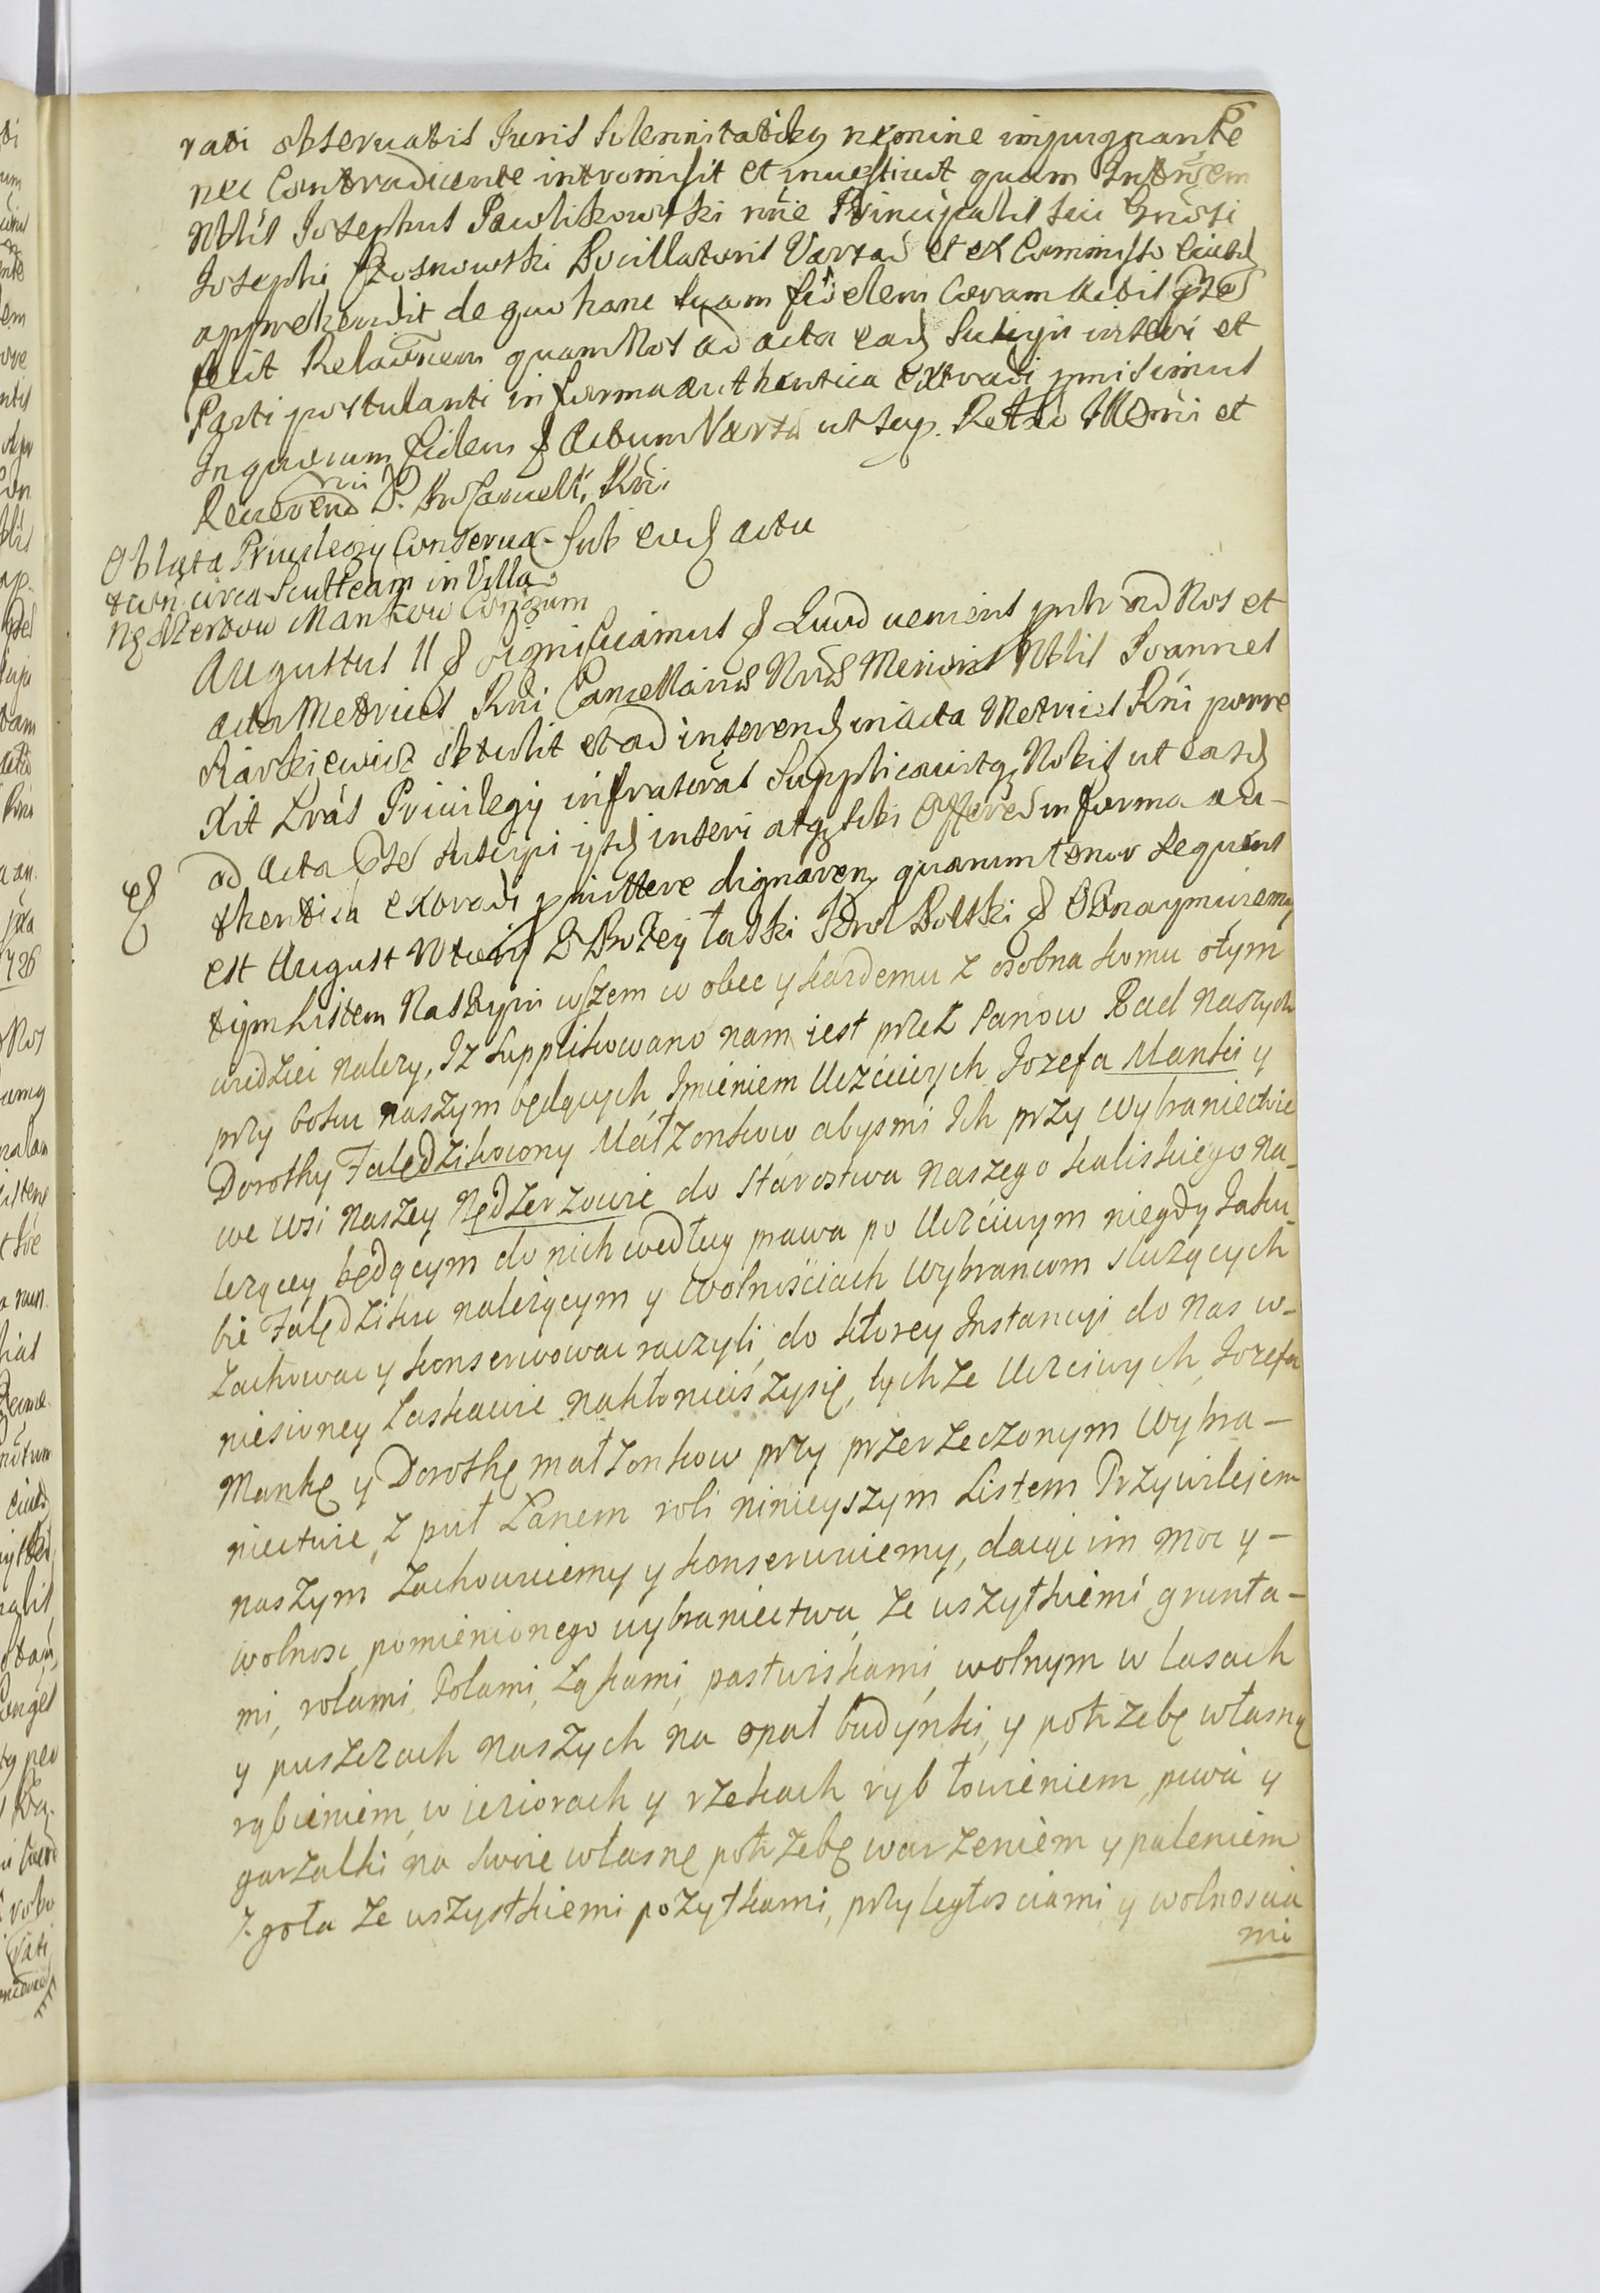 6
rati observatis Juris Solennitatibq nemine impugnante
nec Contradicente intromisit et investivit quam
Nblis Josephus Pawlikowski nrie Principalis sui Gnosi
Josephi Rosnowski Pocillatoris Varsav et ex Commisso eiusd
apprehendit de quo hanc suam fidelem Coram Actis
fecit Relationem quam Nos ad acta ead suscipi inseri et
Parti postulanti in forma authentica extradi pmisimus
In quorum fidem & Actum Varsa ut sup. Rettio Illmi et
Reverend D.
Oblata Privilegy Conserva- Sub eisd actu
tion circa Scultetiam in Villa
Nędzerzow Mankow Conjgum
Augustus II & Significamus & Quod veniens pnls ad Nos et
acta Metrices Rni Cancellarias Nras Nblis Joannes
obtulit et ad inserend in Acta Metrices Rni porre
xit Lras Privilegy infrascras Supplicavitq Nobis ut easd
ad Acta suscipi ysd inseri atq sibi Offered in forma au-
thentica extradi pmittere dignaren quarum tenor sequens
est August Wtory Z Bożey łaski Krol Polski & Oznaymuiemy
tym Listem Naszym wszem w obec y kazdemu z osobna komu o tym
wiedziec nalezy, Iz supplikowano nam iest przez Panow Rad naszych
przy boku naszym będących Imieniem Uczciwych Jozefa Manki y
Dorothy Falędzikowny Małzonkow abysmi Ich przy Wybraniectwie
we wsi naszey Nędzerzowie do Starostwa naszego kaliskiego na-
lezącey będącym do nich według prawa po Uczciwym niegdy Jaku-
bie Falędziku nalezącym y wolnosciach Wybrancom sluzących
zachowac y konserwowac raczyli, do ktorey Instancyi do nas w-
niesioney Laskawie nakłoniwszysię, tychze Uczciwych Jozefa
Mankę y Dorothę małzonkow przy przerzeczonym Wybra-
niectwie, z puł Łanem roli ninieyszym Listem Przywilejem
naszym zachowuiemy y konserwuiemy, daiąc im moc y-
wolnosc pomienionego wybraniectwa, ze wszytkiemi grunta-
mi, rolami, Polami, Łąkami, pastwiskami, wolnym w lasach
y puszczach naszych na opał budynki, y potrzebę własną
rąbieniem, w ieziorach y rzekach ryb łowieniem, piwa y
gorzalki na swoie własnę potrzebę warzeniem y paleniem
zgoła ze wszystkiemi pozytkami, przyległosciami y wolnoscia
mi